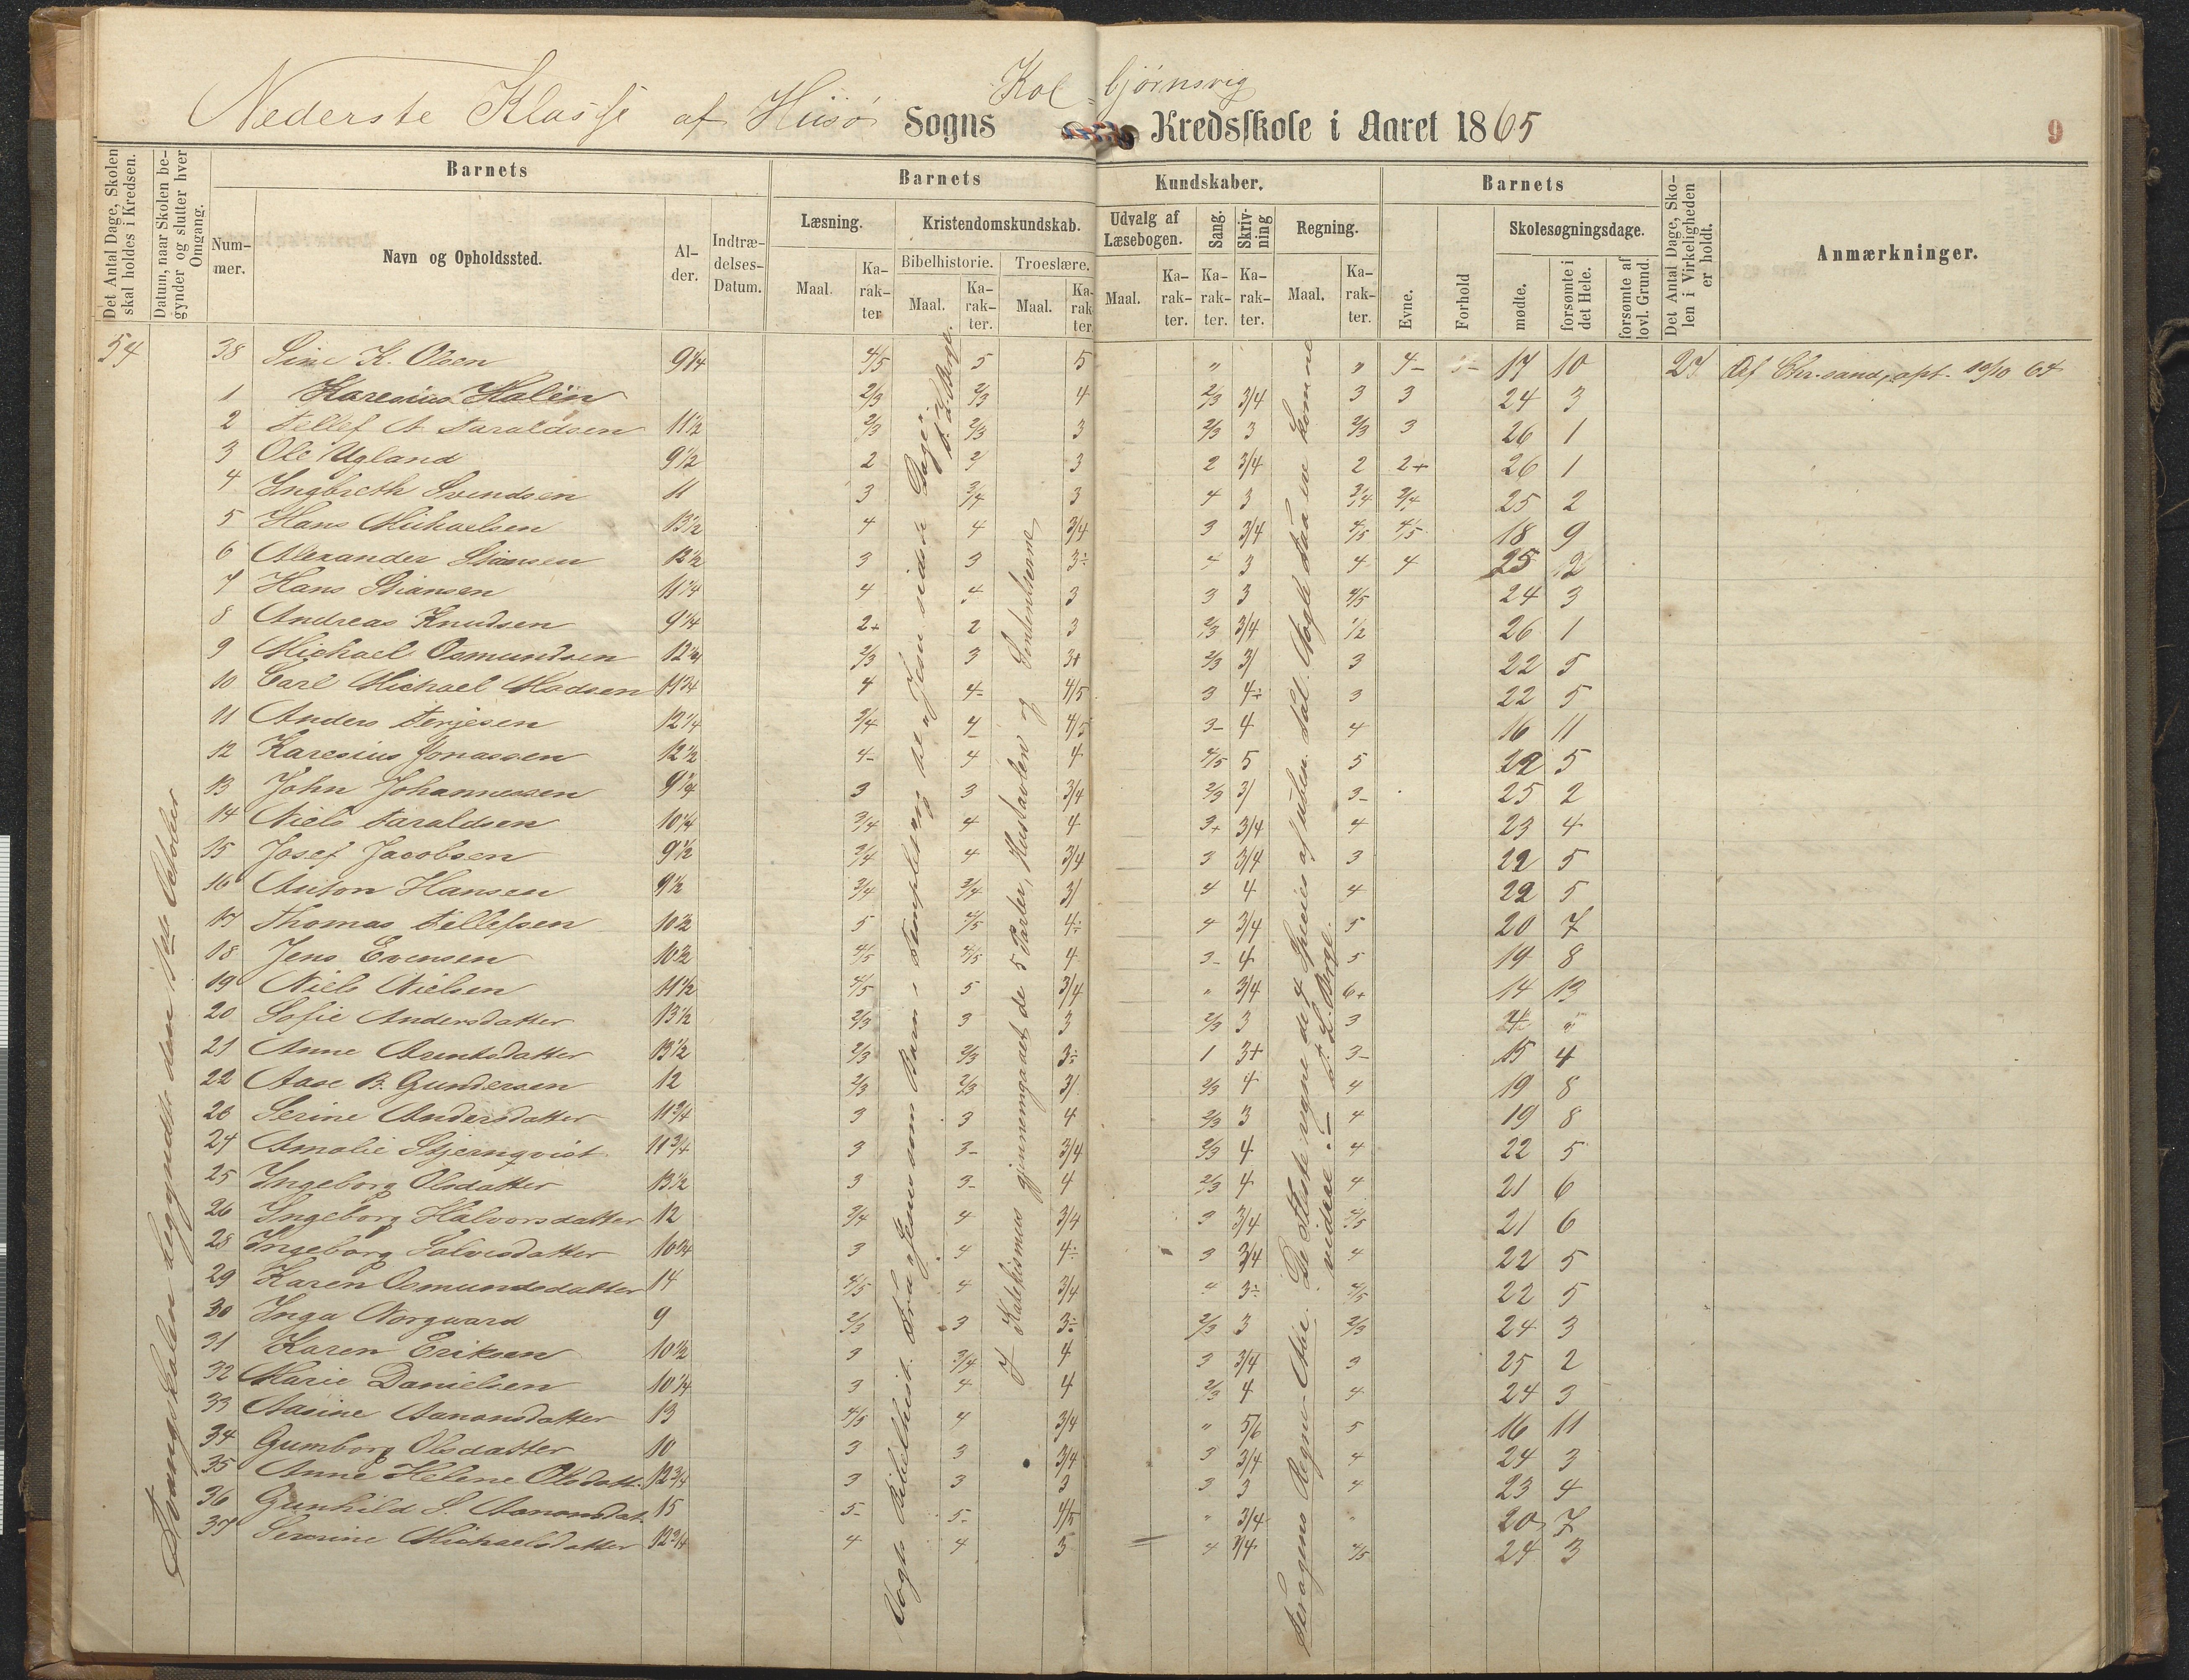 Nederste Klasse af Hiisø Sogns Kolbjørnsvig Kredsskole i Aaret 1865
9
Det Antal Dage, Skolen skal holdes i Kredsen.
Datum, naar Skolen begynder og slutter hver Omgang.
Barnets
Nummer.
Navn og Opholdssted.
Alder.
Indtrædelses-Datum.
Barnets
Læsning.
Maal.
Karakter
Kristendomskundskab.
Bibelhistorie.
Maal.
Karakter.
Troeslære.
Maal.
Karakter.
Kundskaber.
Udvalg af Læsebogen.
Maal.
Karakter.
Sang.
Karakter.
Skrivning
Karakter.
Regning.
Maal.
Karakter.
Barnets
Evne.
Forhold
Skolesøgningsdage.
mødte.
forsømte i det Hele.
forsømte af lovl. Grund.
Det Antal Dage, Skolen i Virkeligheden er holdt.
Anmærkninger.
54 38 Sine K. Olsen 9 1/4 4/5 5 5 " " 4- 17 10 27 Af Chr.sand, opt. 19/10 64
1 Karesius Halèn 2/3 2/3 4 2/3 3/4 3 3 24 3
2 Tellef A Taraldsen 11 1/2 2/3 2/3 3 2/3 3 2/3 3 26 1
3 Ole Ugland 9 1/2 2 2 3 2 3/4 2 2+ 26 1
4 Ingbreth Svendsen 11 3 3/4 3 4 3 3/4 3/4 25 2
5 Hans Michaelsen 13 1/2 4 4 3/4 3 3/4 4/5 4/5 18 9
6 Alexander Stiansen 12 1/2 3 3 3÷ 4 3 4 4 25 2
7 Hans Stiansen 11 1/4 4 4 3 3 3 4/5 24 3
8 Andreas Knudsen 9 1/4 2+ 2 3 2/3 3/4 1/2 26 1
9 Michael Osmundsen 12 3/4 2/3 3 3+ 2/3 3/ 3 22 5
10 Carl Michael Madsen 11 3/4 4 4- 4/5 3 4÷ 3 22 5
11 Anders Terjesen 12 1/4 3/4 4 4/5 3- 4 4 16 11
12 Karesius Jonassen 12 1/2 4- 4 4 4/5 5 5 22 5
13 John Johannessen 9 1/4 3 3 3/4 2/3 3/ 3- 25 2
14 Niels Taraldsen 10 1/4 3/4 4 4 3+ 3/4 4 23 4
15 Josef Jacobsen 9 1/2 3/4 4 3/4 3 3/4 3 22 5
16 Anton Hansen 9 1/2 3/4 3/4 3/ 4 4 4 22 5
17 Thomas Tellefsen 10 1/2 5 4/5 4÷ 4 3/4 5 20 7
18 Jens Evensen 10 1/2 4/5 4/5 4 3- 4 5 19 8
19 Niels Nielsen 11 1/2 4/5 5 3/4 " 3/4 6+ 14 13
20 Sofie Andersdatter 13 1/2 2/3 3 3 2/3 3 3
21 Anne Arentsdatter 13 1/2 2/3 2/3 3÷ 1 3+ 3- 15 4
22 Aase B. Gundersen 12 2/3 2/3 3/ 2/3 4 4 19 8
23 Serine Andersdatter 11 3/4 3 3 4 2/3 3 4 19 8
24 Amalie Stjernqvist 11 3/4 3 3- 3/4 2/3 4 4 22 5
25 Ingeborg Olsdatter 13 1/2 3 3- 4 2/3 4 4 21 6
26 Ingeborg Halvorsdatter 12 3/4 4 3/4 3 3/4 4/5 21 6
28 Ingeborg Salvesdatter 10 3/4 3 4 4÷ 3 3/4 4 22 5
29 Karen Osmundsdatter 14 4/5 4 3/4 4 3÷ 4/5 22 5
30 Inga Norgaard 9 2/3 3 3÷ 2/3 3 2/3 24 3
31 Karen Eriksen 10 1/2 3 3/4 4 3 3/4 3 25 2
32 Marie Danielsen 10 1/4 3 4 4 2/3 4 4 24 3
33 Aasine Aanonsdatter 13 4/5 4 3/4 " 5/6 5 16 11
34 Gumborg Olsdatter 10 3 3 3/4 3 3/4 4 24 3
35 Anne Helene Olsdatt. 12 3/4 3 3 3 3 3 4 23 4
36 Gunhild S. Aanonsdat. 15 5- 5- 4/5 " 3/4 " 20 7
37 Severine Michaelsdatter 12 3/4 4 4 3 4 3/4 4/5 24 3
Tvangsskolen begyndte den 1ste October
Vogts Bibelhist. Fra Jesus som Barn i Templet og til Jesu sidste Dage
I Katekismus gjennemgaaet de 5 Parter, Hustavlen og
Regne- De fleste regne de 4 Species af uben. Tal. Nogle faa ere komne videre.